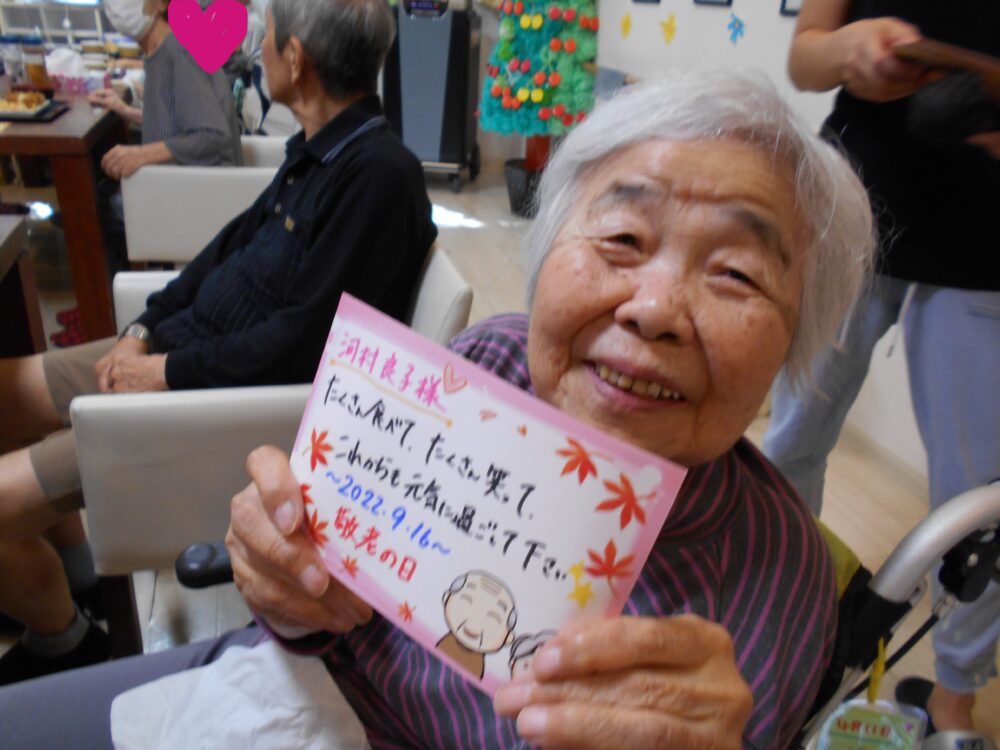 河村良子様
たくさん食べて、たくさん笑って、
これからも元気に過ごして下さい
～2022.9.16～
敬老の日